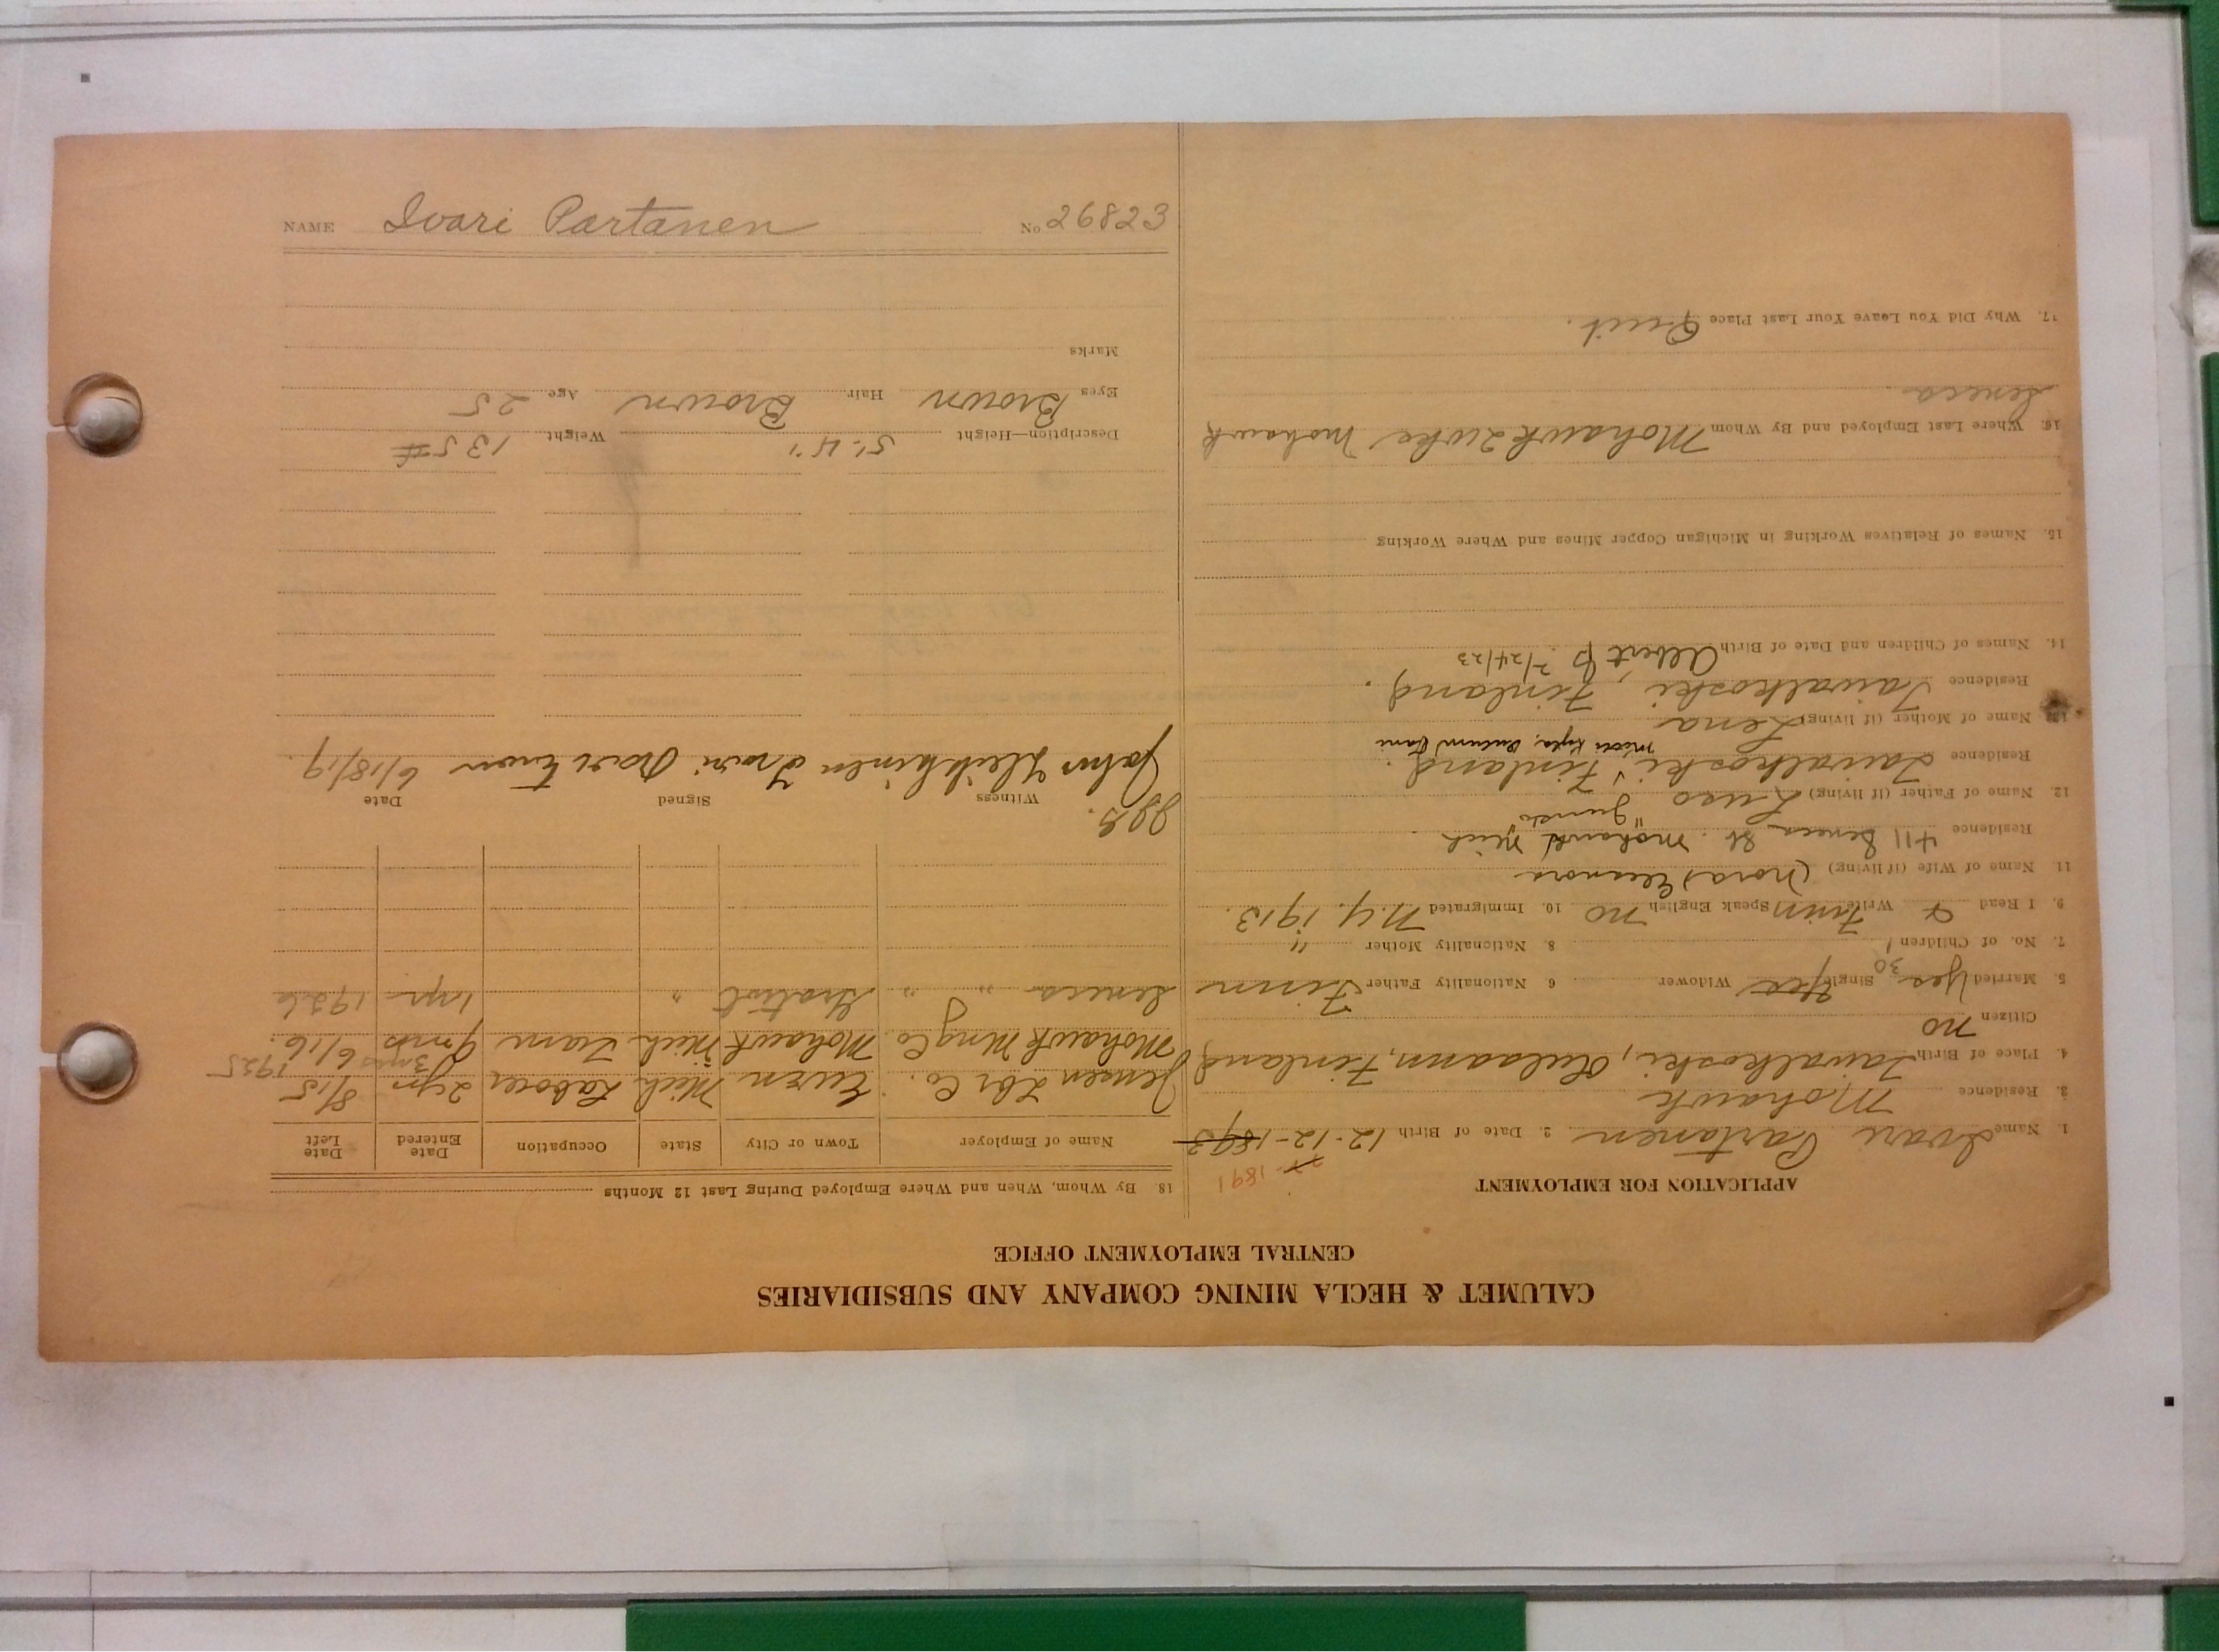 CALUMET & HECLA MINING COMPANY AND SUBSIDIARIES
CENTRAL EMPLOYMENT OFFICE
APPLICATION FOR EMPLOYMENT
1891
1. Name Ivari Partanen 2. Date of Birth 12-12-1893
3. Residence Mohawk
4. Place of Birth Taivalkoski, Finland
Citizen no
5. Married Yes 30 Single Yes Widower 6 Nationality Father Finn
7. No. of Children 1 8. Nationality Mother "
9. I Read & Write Finn Speak English no 10. Immigrated N.Y. 1913.
11. Name of Wife (if living) (Nora) Eleanora
Residence 411 Seneca St. Mohawk Mich
12. Name of Father (if living)
Residence Taivalkoski, Finland.
13. Name of Mother (if living) Lena
Residence Taivalkoski, Finland.
14. Names of Children and Date of Birth Albert 2/24/23
15. Names of Relatives Working in Michigan Copper Mines and Where Working
16. Where Last Employed and By Whom Mohawk Mohawk
Seneca
17. Why Did You Leave Your Last Place Quit.
18. By Whom, When and Where Employed During Last 12 Months
Name of Employer Town or City State Occupation Date Entered Date Left
Jensen Lbr Co. Ewen Mich Laborer 2 yr 8/15
3 mos 1925
Mohawk Mng Co. Mohawk Mich Tram 9 mts 6/16.
Seneca " " Gratiot " 1 yr 1926
Witness Signed Date
John Heikkinen 6/18/19.
Description—Height 5'-4" Weight 135#
Eyes Brown Hair Brown Age 25
Marks
NAME Ivari Partanen No 26823